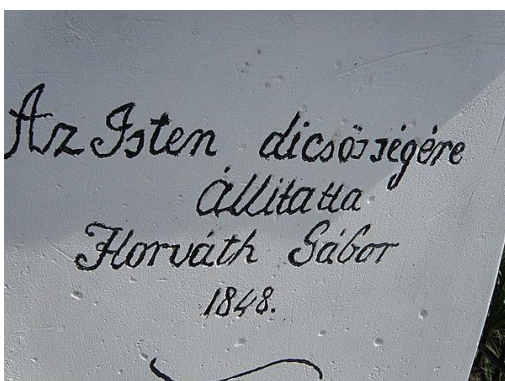 Az Isten dicsősségére
Állitatta
Horváth Gábor
1848.